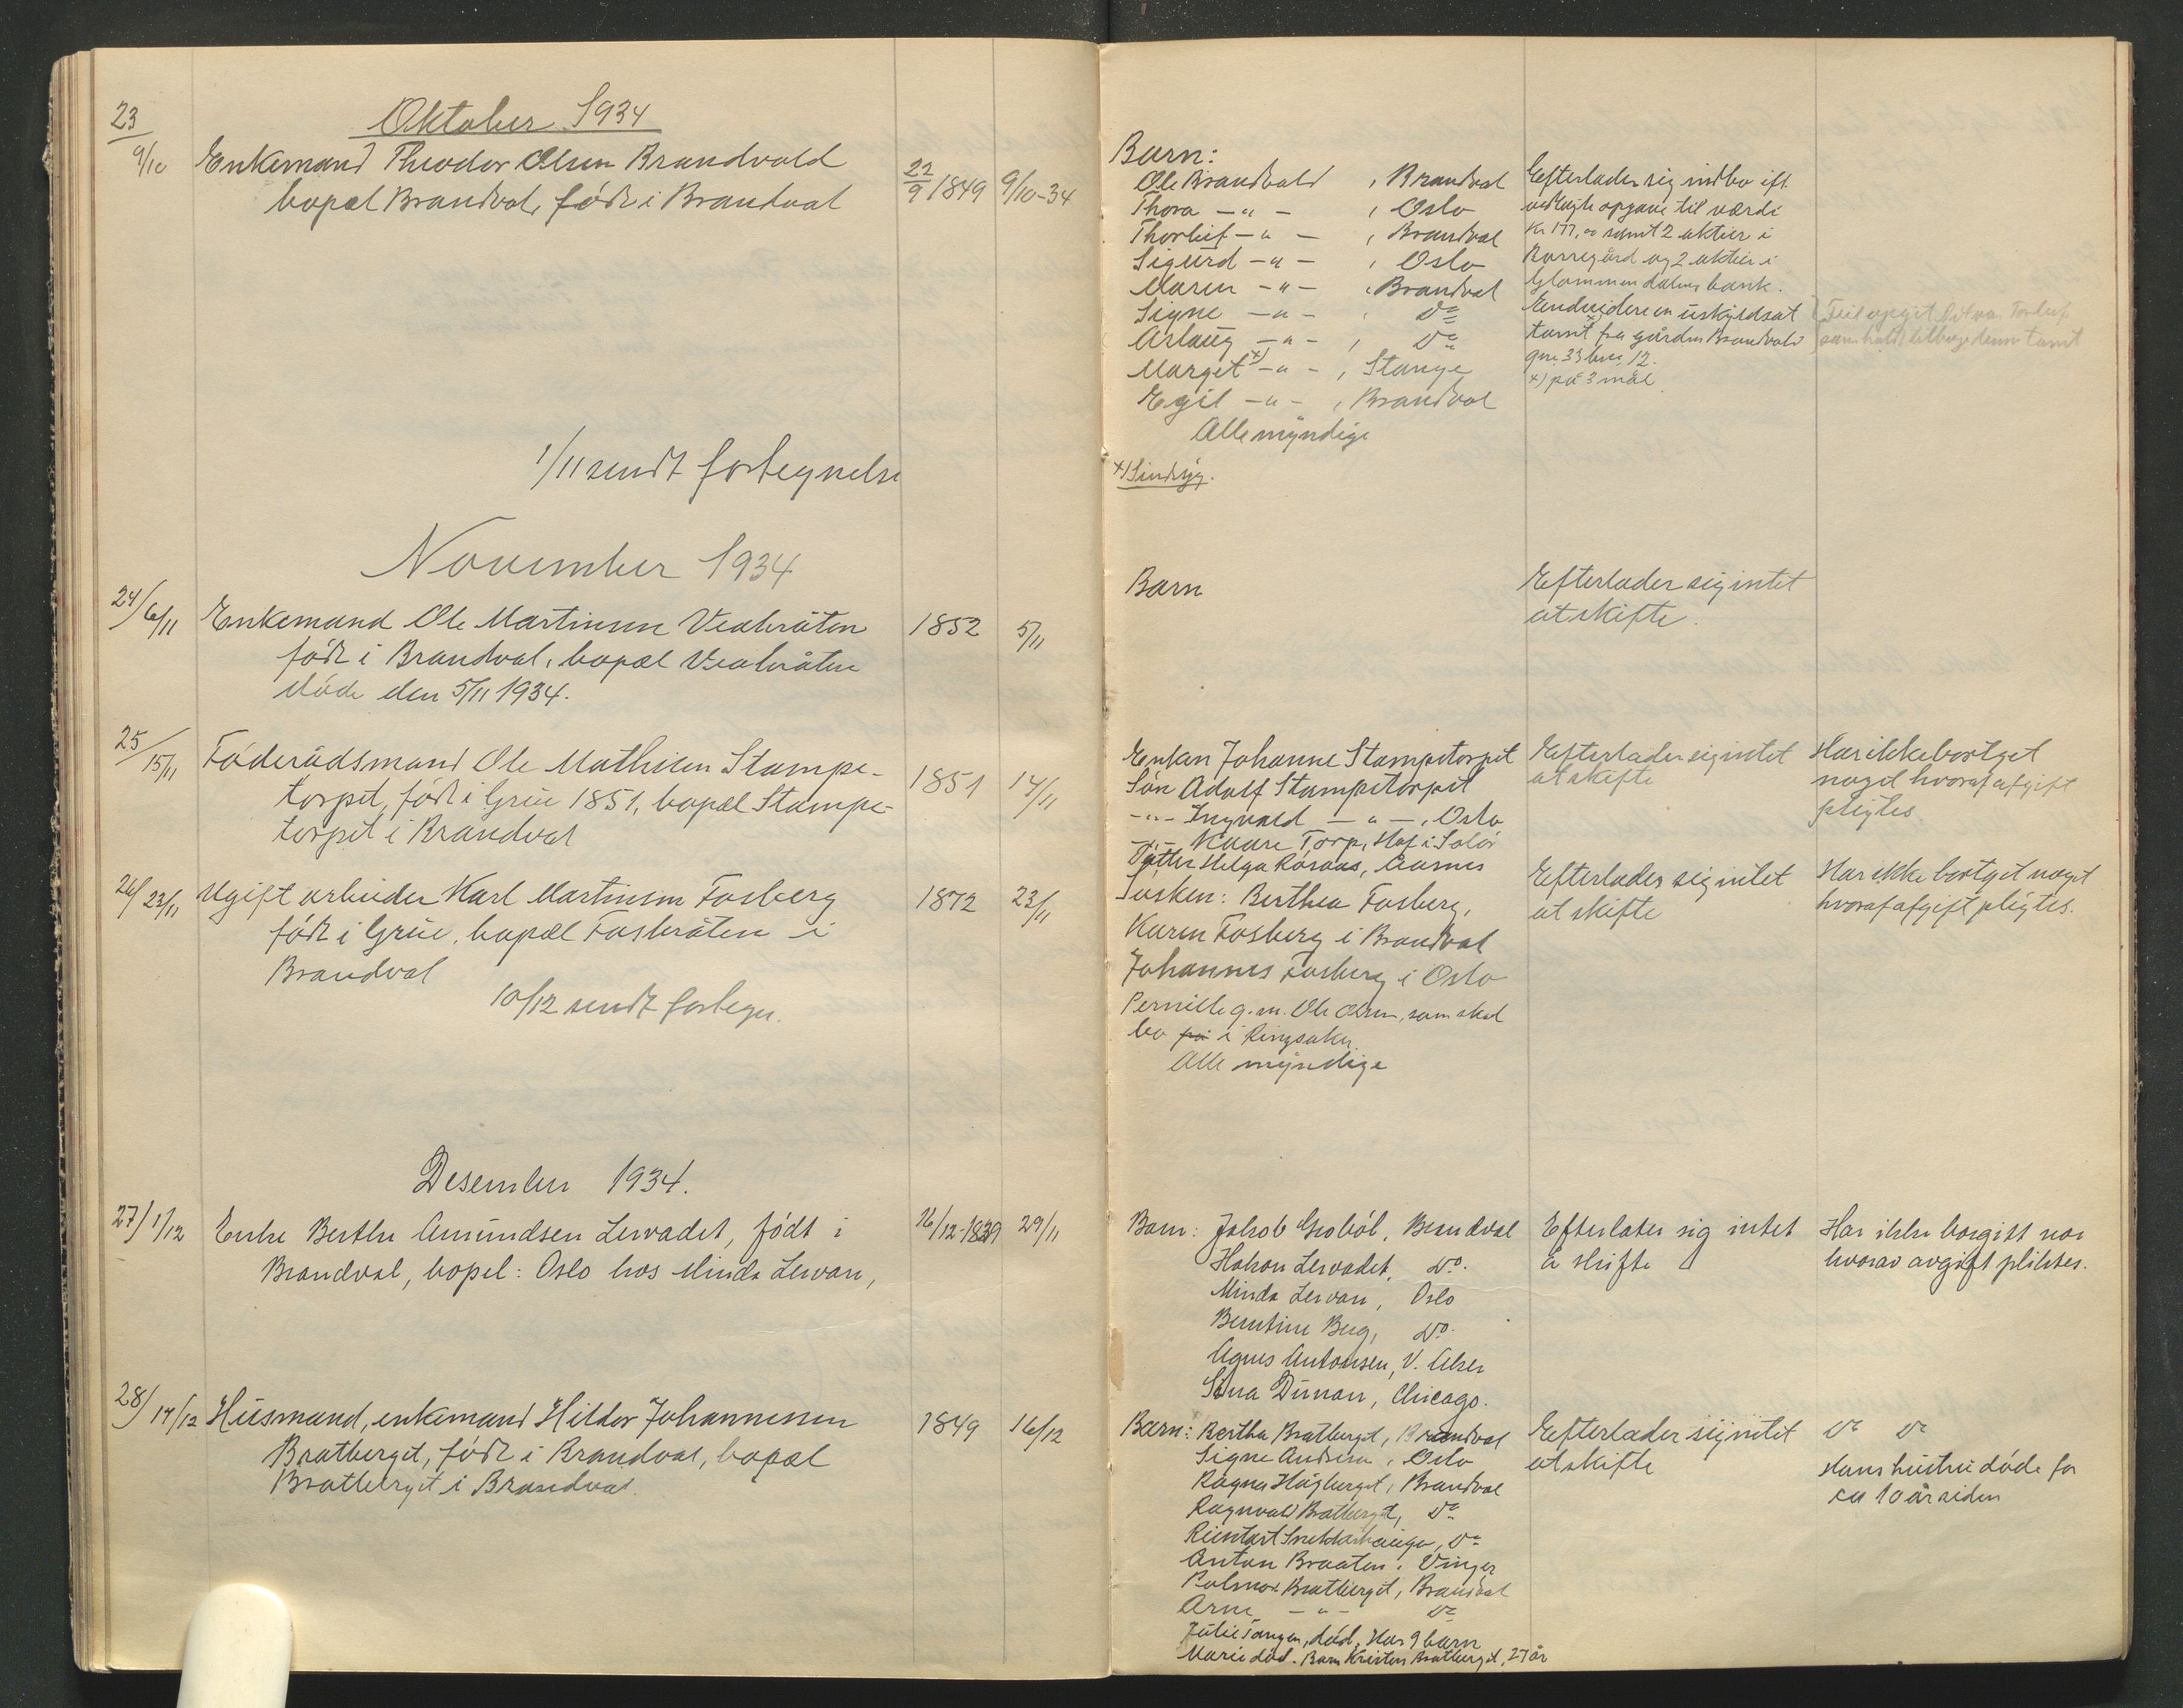 Oktober 1934
23
9/10 Enkemand Theodor Olsen Brandvold
bopæl Brandval, født i Brandval
22/9 1849 9/10-34
Barn:
Ole Brandvold , Brandval
Thora -"- , Oslo
Thorleif -"- , Brandval
Sigurd -"- , Oslo
Maren -"- , Brandval
Signe -"- , Do
Aslaug -"- , Do
Margit x) -"- , Stange
Egil -"- , Brandval
Alle myndige
x) Sindsyg.
Efterlader sig indbo ifl.
vedlagte opgave til værdi
Kr 177,00 samt 2 aktier i
Borregård og 2 aktier i
Glommendalens bank.
Endvidere en uskyldsat
tomt x) fra gården Brandvold
gnr 33 bnr. 12.
x) på 3 mål.
Feil opgit. Det var Torleif
som hadde denne tomt
1/11 sendt fortegnelse
November 1934
24/6/11 Enkemand Ole Martinsen Vealøråten
født i Brandval, bopæl Vealøråten
døde den 5/11 1934.
1852 5/11
Barn
Efterlader sig intet
at skifte.
25/15/11 Føderådsmand Ole Mathisen Stampe-
torpet, født i Grue 1851, bopæl Stampe-
torpet i Brandval
1851 14/11
Enken Johanne Stampetorpet
Søn Adolf Stampetorpet
-"- Ingvald -"-, Oslo
-"- Kaare Torp, Hof i Solør
Datter Helga Rósaas, Aarnes
Efterlader sig intet
at skifte
Har ikke bortget
noget hvoraf afgift
pligtes
26/23/11 Ugift arbeider Karl Martinsen Fosberg
født i Grue, bopæl Fosbråten i
Brandval
1872 23/11
Søsken: Berthea Fosberg,
Karen Fosberg i Brandval
Johannes Fosberg i Oslo
Pernille g.m. Ole Olsen, som skal
bo på i Ringsaker.
Alle myndige
Efterlader sig intet
at skifte
Har ikke bortget noget
hvoraf afgift pligtes.
10/12 sendt fortegn.
Desember 1934.
27/1/12 Enke Berthe Amundsen Lervadet, født i
Brandval, bopel: Oslo hos Minda Lervan,
16/12-1839 29/11
Barn: Jakob Grobøl, Brandval
Hakon Lervadet, do.
Minda Lervan, Oslo
Berntine Berg, do.
Agnes Antonsen, V. Aker
Sina Dunan, Chicago.
Efterlater sig intet
å skifte
Har ikke borgitt noe
hvorav avgift pliktes.
28/17/12 Husmand, enkemand Hildor Johannesen
Bratberget, født i Brandval, bopæl
Bratberget i Brandval.
1849 16/12
Barn: Bertha Bratberget, Brandval
Signe Andersen, Oslo
Ragna Høgberget, Brandval
Ragnvald Bratberget, Do
Anton Braaten, Vinger
Palmer Bratberget, Brandval
Arne -"- Do
Julie Tangen, død. Har 9 barn
Marie død. Barn Kristen Bratberget, 27 år
Efterlader sig intet
at skifte
Do Do
Hans hustru døde for
ca 10 år siden